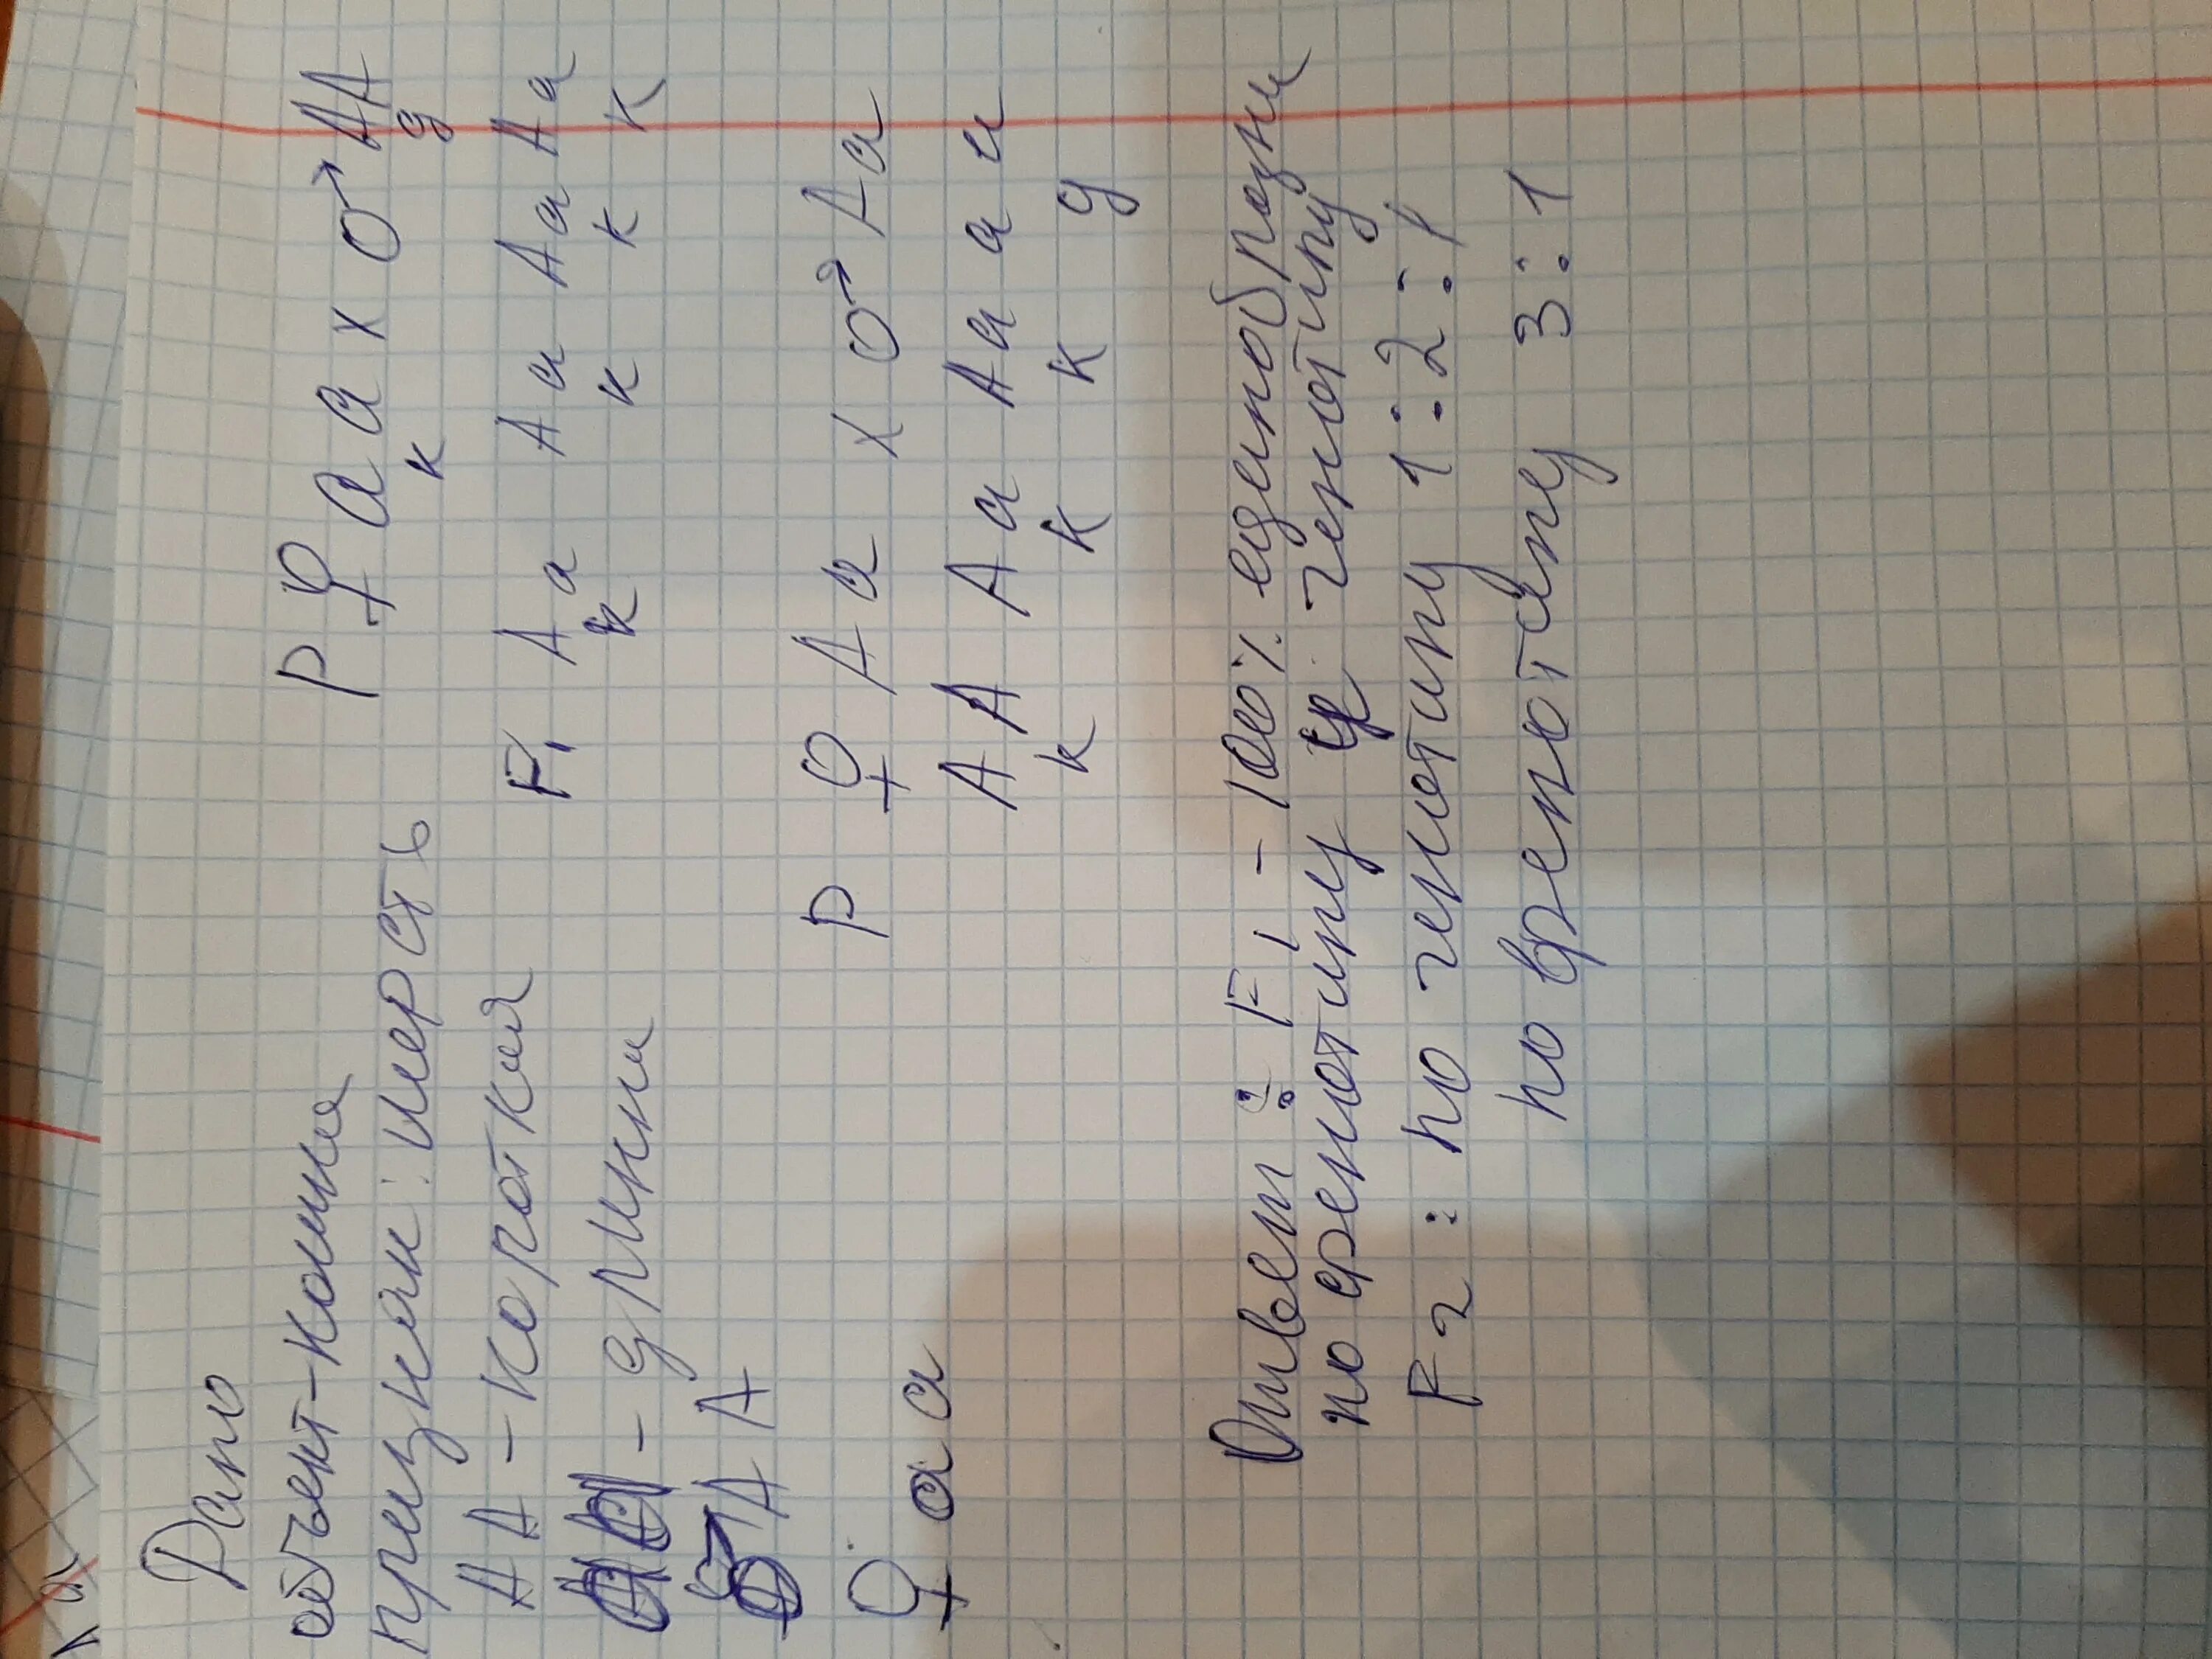 Дано
объект-кошка
признак: шерсть
АА - короткая
- длинн
♂ А А
♀ а а
Р ♀ а а х ♂ АА
к д
F1 Аа Аа Аа Аа
к к к к
Р ♀ Аа х ♂ Аа
АА Аа Аа аа
к к к д
Ответ: F1 - 100% единобразны
по фенотипу и генотипу
F2: по генотипу 1:2:1
по фенотипу 3:1